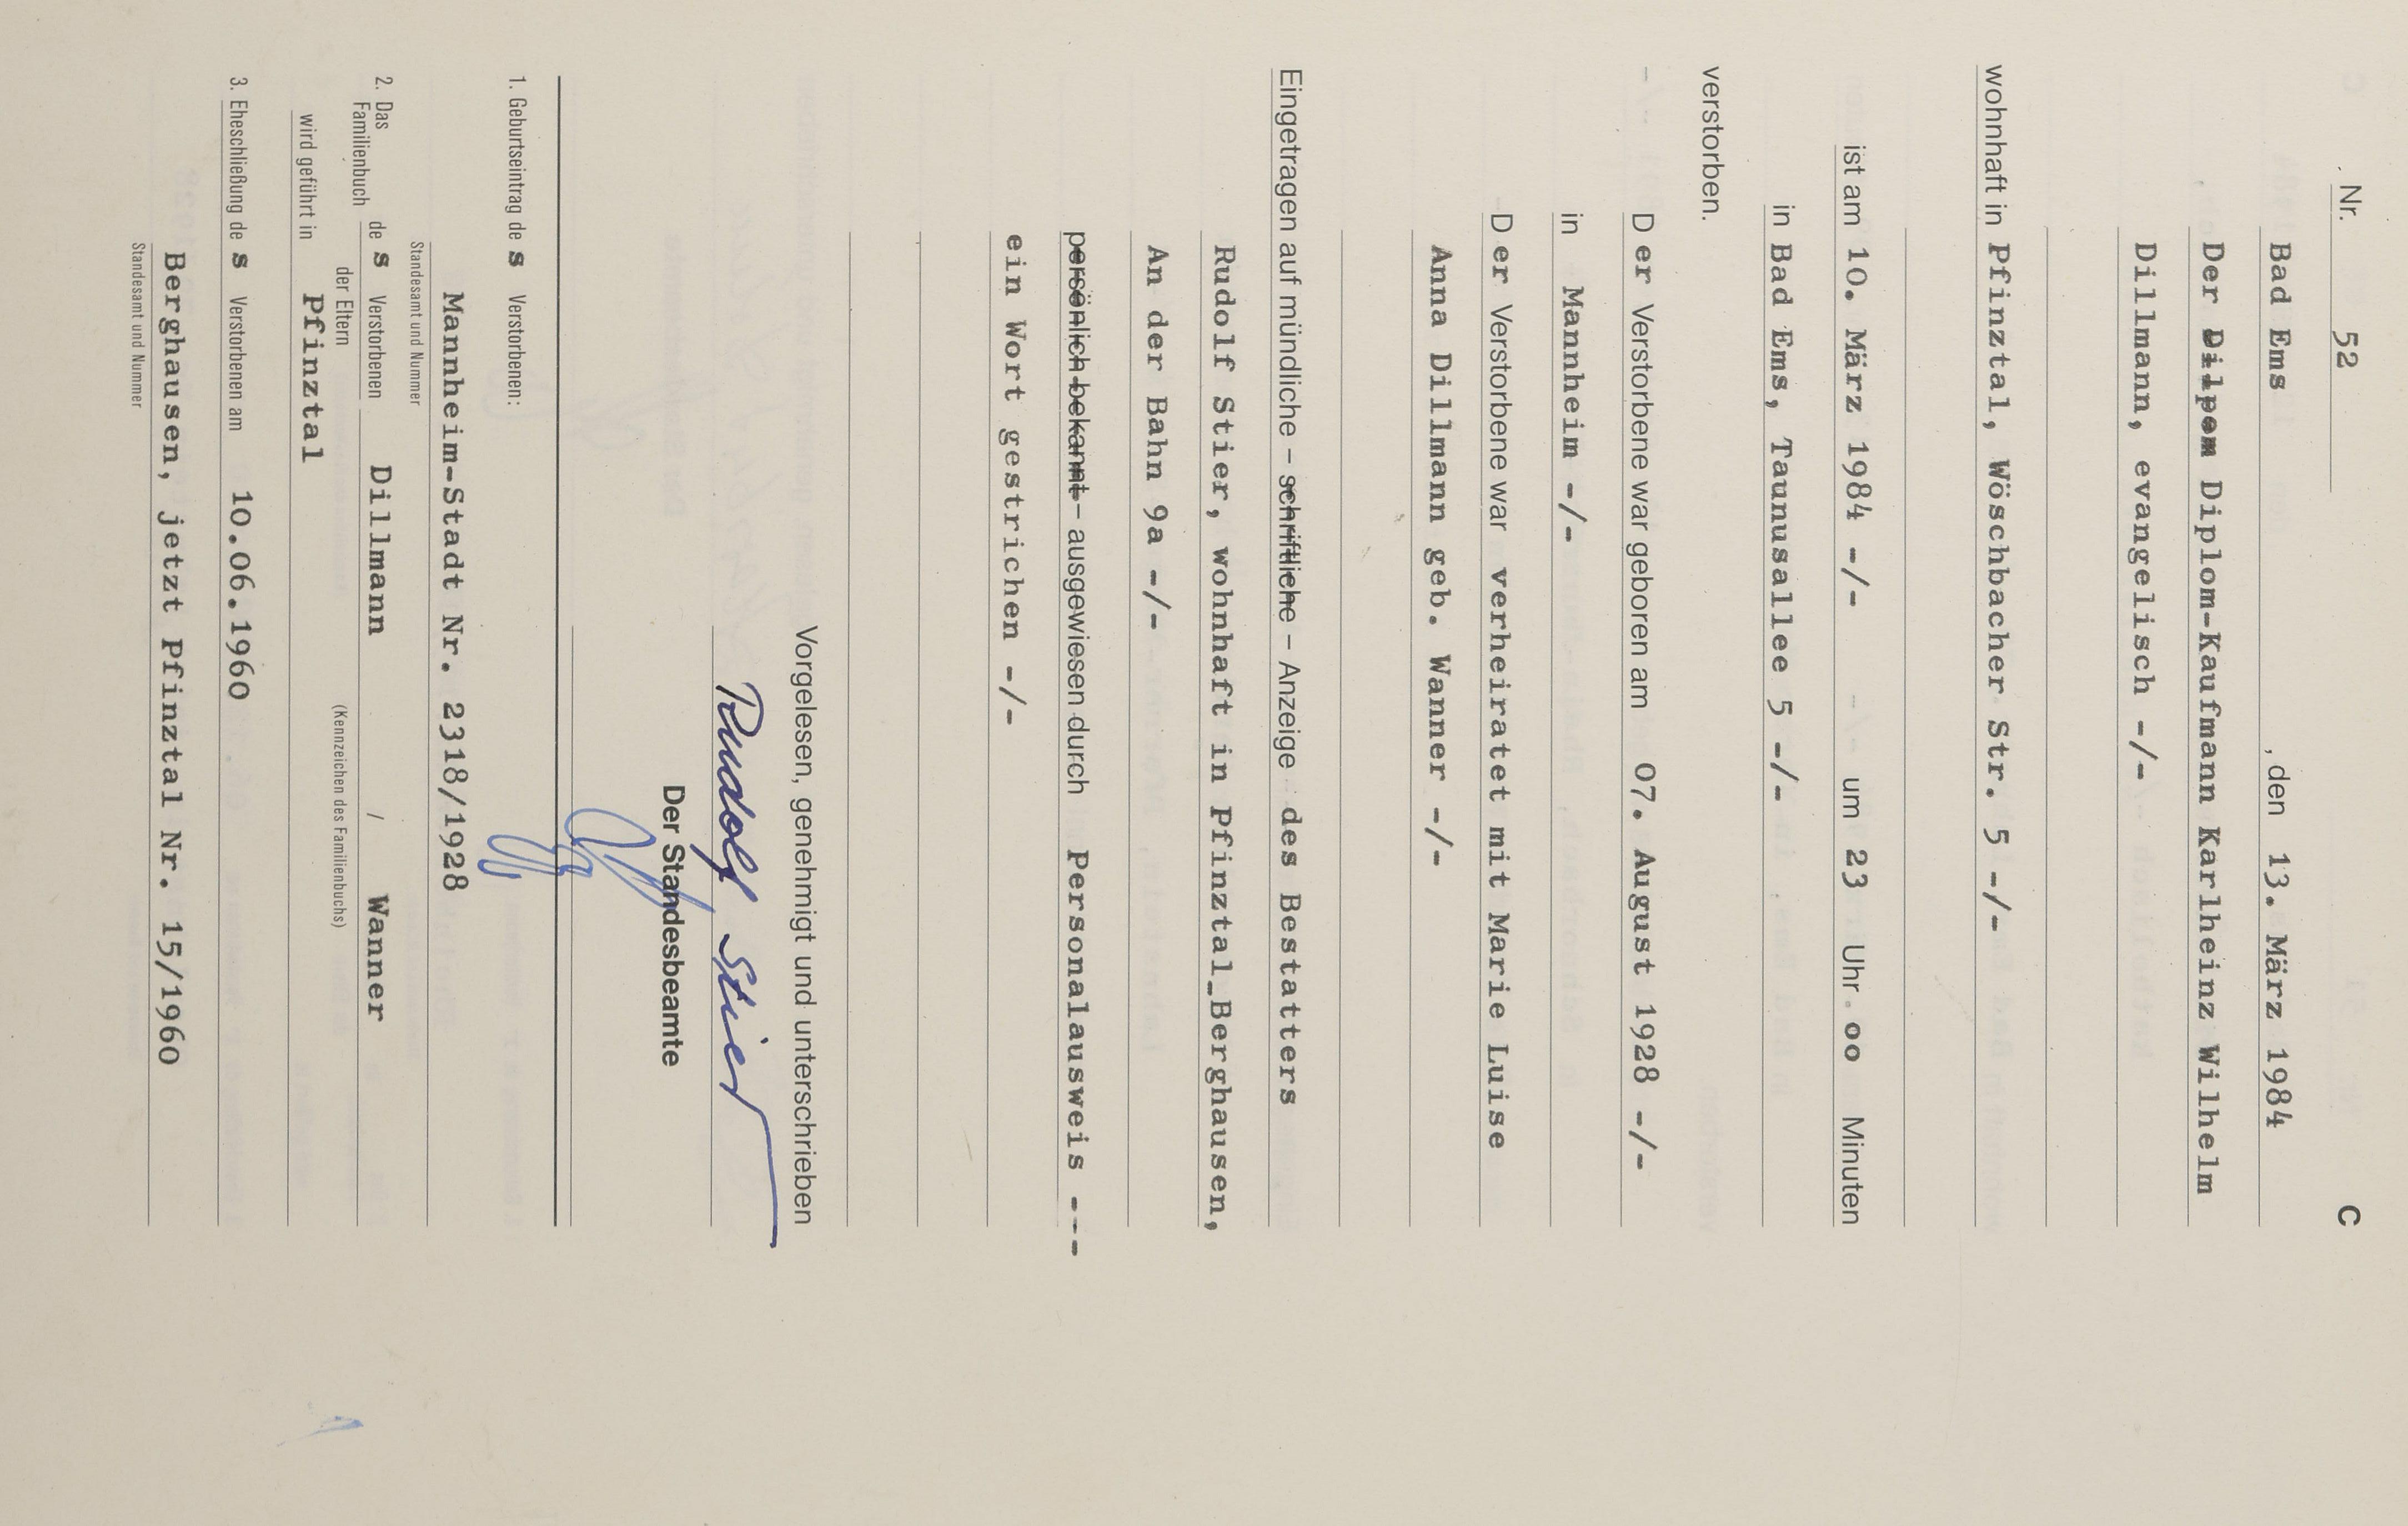 Nr. 52 C
Bad Ems , den 13. März 1984
Der Dilpom Diplom-Kaufmann Karlheinz Wilhelm
Dillmann, evangelisch -/-
wohnhaft in Pfinztal, Wöschbacher Str. 5 -/-
ist am 10. März 1984 -/- um 23 Uhr oo Minuten
in Bad Ems, Taunusallee 5 -/-
verstorben.
Der Verstorbene war geboren am 07. August 1928 -/-
in Mannheim -/-
Der Verstorbene war verheiratet mit Marie Luise
Anna Dillmann geb. Wanner -/-
Eingetragen auf mündliche – schriftliche – Anzeige des Bestatters
Rudolf Stier, wohnhaft in Pfinztal_Berghausen,
An der Bahn 9a -/-
persönlich bekannt – ausgewiesen durch Personalausweis ---
ein Wort gestrichen -/-
Vorgelesen, genehmigt und unterschrieben
Rudolf Stier
Der Standesbeamte
1. Geburtseintrag des Verstorbenen:
Mannheim-Stadt Nr. 2318/1928
Standesamt und Nummer
2. Das Familienbuch des Verstorbenen Dillmann / Wanner
der Eltern (Kennzeichen des Familienbuchs)
wird geführt in Pfinztal
3. Eheschließung des Verstorbenen am 10.06.1960
Berghausen, jetzt Pfinztal Nr. 15/1960
Standesamt und Nummer